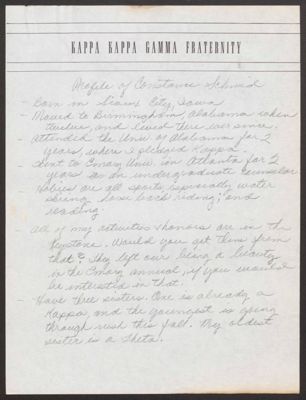 KAPPA KAPPA GAMMA FRATERNITY
Profile of Constance Schmid
- Born in Sioux City, Iowa
- Moved to Birmingham, Alabama when
twelve, and lived there ever since.
- Attended the Univ. of Alabama for 2
years, where I pledged Kappa.
- Went to Emory Univ. in Atlanta for 2
years as an undergraduate counselor
- Hobies are all sports, especially water
skiing, horse back riding, and
reading.
- All of my activities & honors are in the
Keystone. Would you get them from
that? They left out being a beauty
in the Emory annual, if you would
be interested in that.
- Have three sisters. One is already a
Kappa, and the youngest is going
through rush this fall. My oldest
sister is a Theta.